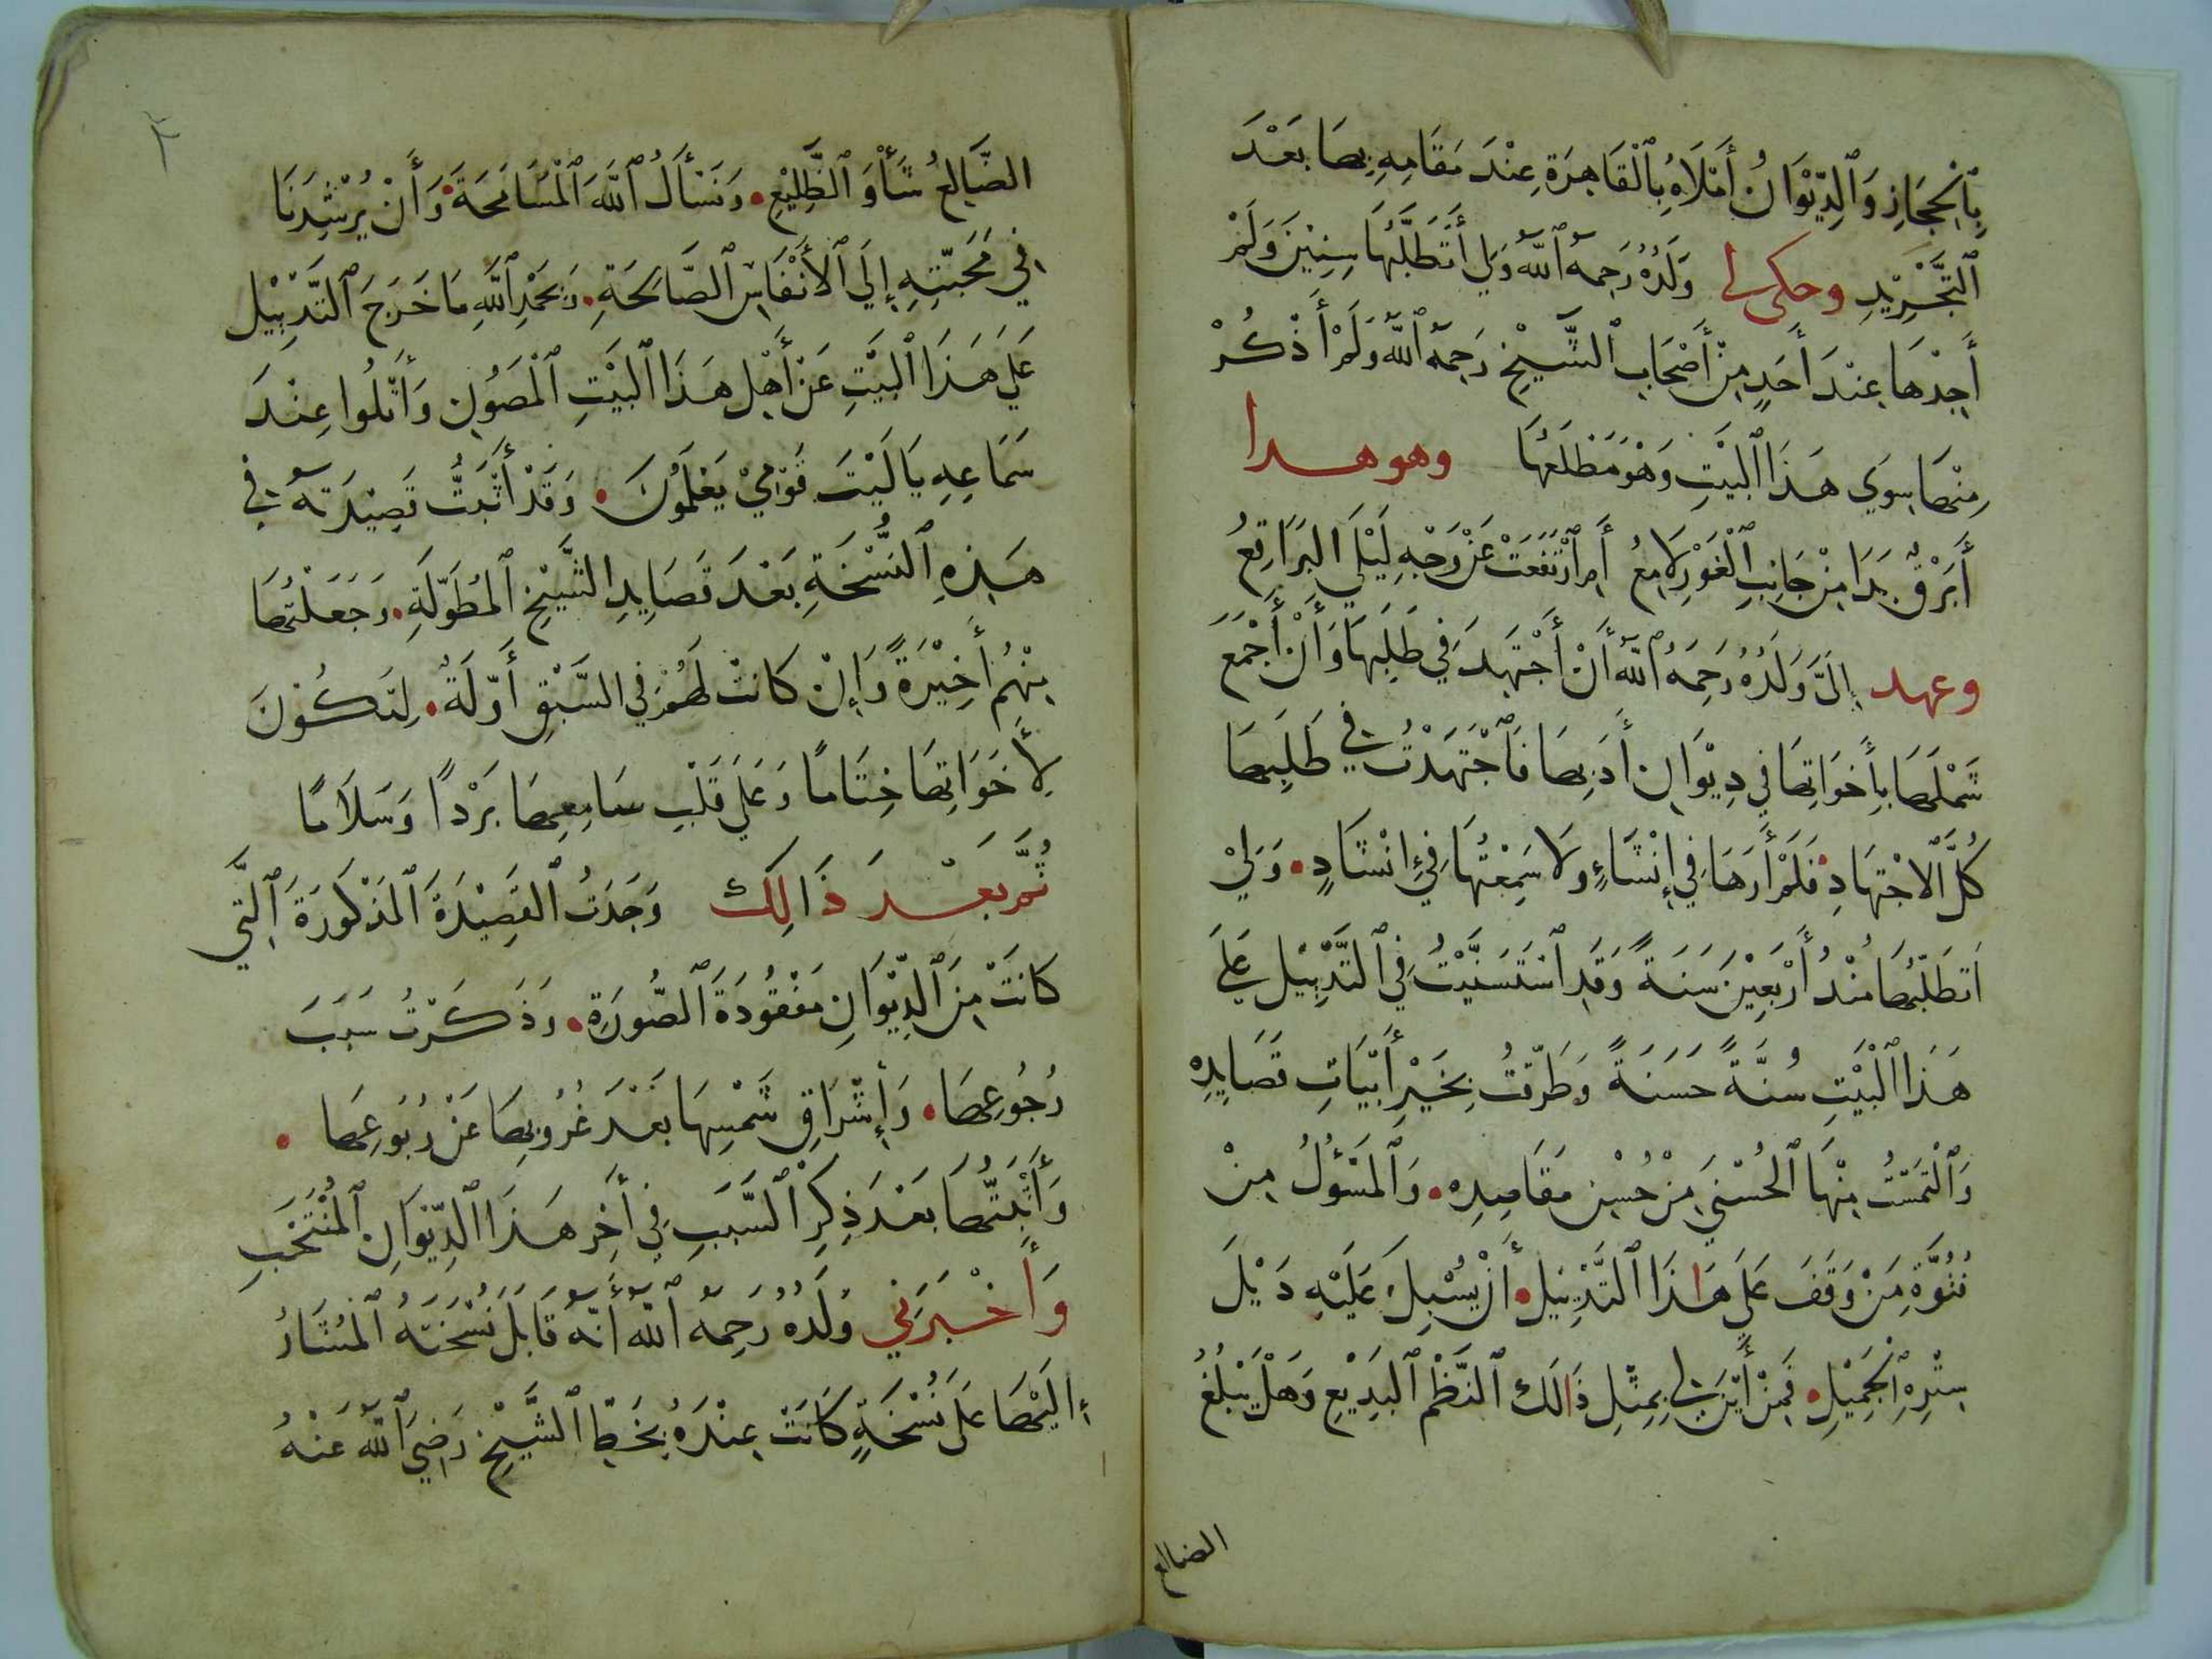 بِالْحِجَازِ وَالدِّيْوَانُ أَمْلَاهُ بِالْقَاهِرَةِ عِنْدَ مَقَامِهِ بِهَا بَعْدَ
التَّجْرِيْدِ وحكى لي وَلَدُهُ رَحِمَهُ اللهُ وَلِي أَتَطَلَّبُهَا سِنِيْنَ وَلَمْ
أَجِدْهَا عِنْدَ أَحَدٍ مِنْ أَصْحَابِ الشَّيْخِ رَحِمَهُ اللهُ وَلَمْ أَذْكُرْ
مِنْهَا سِوَي هَذَا الْبَيْتِ وَهْوَ مَطْلَعُهَا وهو هدا
أَبَرْقٌ بَدَا مِنْ جَانِبِ الْغَوْرِ لَامِعُ أَمِ ارْتَفَعَتْ عَنْ وَجْهِ لَيْلَي البَرَاقِعُ
وعهد إِلَيَّ وَلَدُهُ رَحِمَهُ اللهُ أَنْ أَجْتَهِدَ فِي طَلَبِهَا وَأَنْ أَجْمَعَ
شَمْلَهَا بِأَخَوَاتِهَا فِي دِيْوَانِ أَدَبِهَا فَاجْتَهَدْتُ فِي طَلَبِهَا
كُلَّ الْاجْتِهَادِ فَلَمْ أَرَهَا فِي إِنْشَاءٍ وَلَا سَمِعْتُهَا فِي إِنْشَادٍ وَلِيْ
اَتطَلَّبُهَا مُنْدُ أَرْبَعِيْنَ سَنَةً وَقَدِ اسْتَسَنَّيْتُ فِي التَّدْيِيْلِ عَلَي
هَذَا الْبَيْتِ سُنَّةً حَسَنَةً وَطَرَّقْتُ بِخَيْرِ أَبْيَاتِ قَصَايِدِهِ
وَالْتَمَسْتُ مِنْهَا الْحُسْنَي مِنْ حُسْنِ مَقَاصِدِهِ وَالْمَسْؤُلُ مِنْ
فُتُوَّةِ مَنْ وَقَفَ عَلَي هَاذَا التَّذْيِيْلِ أَنْ يُسْبِلَ عَلَيْهِ دَيْلَ
سِتْرِهِ الْجَمِيْلِ فَمِنْ أَيْنَ لِي بِمِثْلِ ذَالَكَ النَّظْمِ الْبَدِيْعِ وَهَلْ يَبْلُغُ
الضالع
الضَّالِعُ شَأْوَ الظَّلِيْعِ وَنَسْأَلُ اللهَ الْمُسَامَحَةَ وَأَنْ يُرْشِدَنَا
فِي مَحَبَّتِهِ إِلَي الْأَنْفَاسِ الصَّالِحَةِ وَبِحَمْدِ اللهِ مَا خَرَجَ التَّدْيِيْل
عَلَي هَذَا الْبَيْتِ عَنْ أَهْلِ هَذَا الْبَيْتِ الْمَصُوْنِ وَأَتْلُوا عِنْدَ
سَمَاعِهِ يَا لَيْتَ قَوْمِيْ يَعْلَمُونَ وَقَدْ أَثْبَتُّ قَصِيْدَتَهُ فِي
هَذِهِ النُّسْخَةِ بَعْدَ قَصَايِدِ الشَّيْخِ الْمُطَوَّلَةِ وَجَعَلْتُهَا
مِنْهُمْ أَخِيْرَةً وَإِنْ كَانَتْ لَهُمْ فِي السَّبْقِ أَوَّلَةً لِتَكُوْنَ
لِأَخَوَاتِهَا خِتَامًا وَعَلَي قَلْبِ سَامِعِهَا بَرْدًا وَسَلَامًا
ثُمَّ بَعْدَ ذَالِكَ وَجَدْتُ الْقَصِيْدَةَ الْمَذْكُورَةَ الَّتِي
كَانَتْ مِنَ الدِّيْوَانِ مَفْقُودَةَ الصُّورَةِ وَذَكَرْتُ سَبَبَ
رُجُوعِهَا وَإِشْرَاقِ شَمْسِهَا بَعْدَ غُرُوبِهَا عَنْ رُبُوعِهَا
وَأَثْبَتُّهَا بَعْدَ ذِكْرِ السَّبَبِ فِي أَخِرِ هَذَا الدِّيْوَانِ الْمُنْتَخَبِ
وَأَخْبَرَنِي وَلَدُهُ رَحِمَهُ اللهُ أَنَّهُ قَابَلَ نُسْخَتَهُ الْمُشَارُ
إِلَيْهَا عَلَى نُسْخَةٍ كَانَتْ عِنْدَهُ بِخَطِّ الشَّيْخِ رَضِيَ اللهُ عَنْهُ